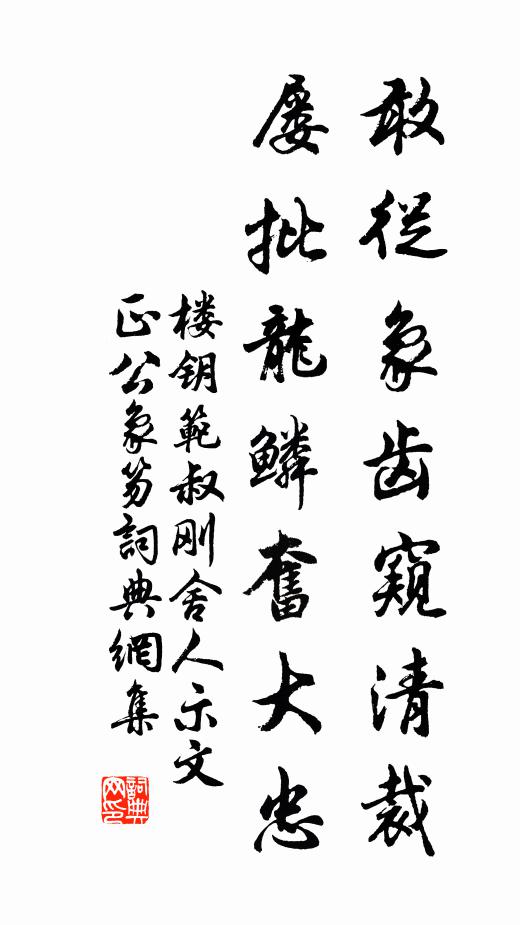 敢從象齒窺清裁
屡批龍鱗奮大忠
楼钥範叔刚舍人示文
正公象笏詞典網集
詞典網印